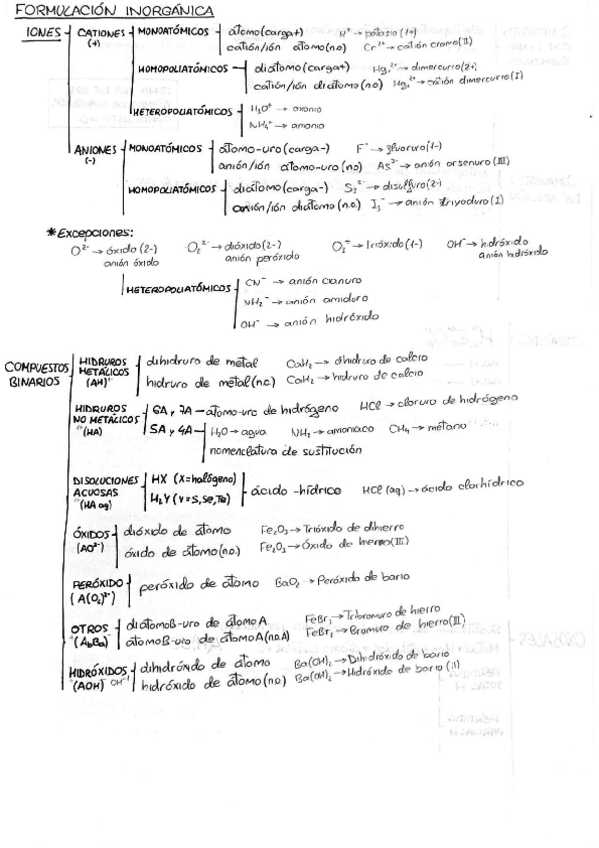 FORMULACIÓN INORGÁNICA
IONES
CATIONES (+)
MONOATÓMICOS
átomo (carga+) K⁺ → potasio (1+)
catión/ión átomo (n.o) Cr²⁺ → catión cromo (II)
HOMOPOLIATÓMICOS
diátomo (carga+) Hg₂²⁺ → dimercurio (2+)
catión/ión diátomo (n.o) Hg₂²⁺ → catión dimercurio (I)
HETEROPOLIATÓMICOS
H₃O⁺ → oxonio
NH₄⁺ → amonio
ANIONES (-)
MONOATÓMICOS
átomo-uro (carga-) F⁻ → fluoruro (1-)
anión/ión átomo-uro (n.o) As³⁻ → anión arsenuro (III)
HOMOPOLIATÓMICOS
diátomo (carga-) S₂²⁻ → disulfuro (2-)
anión/ión diátomo (n.o.) I₃⁻ → anión triyoduro (I)
*Excepciones:
O²⁻ → óxido (2-) O₂²⁻ → dióxido (2-) O₃⁻ → trióxido (1-) OH⁻ → hidróxido
anión óxido anión peróxido anión hidróxido
HETEROPOLIATÓMICOS
CN⁻ → anión cianuro
NH₂⁻ → anión amiduro
OH⁻ → anión hidróxido
COMPUESTOS BINARIOS
HIDRUROS METÁLICOS (AH)
dihidruro de metal CaH₂ → dihidruro de calcio
hidruro de metal (n.o.) CaH₂ → hidruro de calcio
HIDRUROS NO METÁLICOS (HA)
6A y 7A → átomo-uro de hidrógeno HCl → cloruro de hidrógeno
5A y 4A
H₂O → agua NH₃ → amoniaco CH₄ → metano
nomenclatura de sustitución
DISOLUCIONES ACUOSAS (HA aq)
HX (X=halógeno)
H₂Y (Y=S,Se,Te)
ácido -hídrico HCl (aq) → ácido clorhídrico
ÓXIDOS (AO²⁻)
dióxido de átomo Fe₂O₃ → Trióxido de dihierro
óxido de átomo (n.o.) Fe₂O₃ → Óxido de hierro (III)
PERÓXIDO (A(O₂)²⁻)
peróxido de átomo BaO₂ → Peróxido de bario
OTROS (AbBa)
diátomoB-uro de átomo A FeBr₃ → Tribromuro de hierro
átomoB-uro de átomo A (n.o A) FeBr₃ → Bromuro de hierro (III)
HIDRÓXIDOS (AOH) OH⁻
dihidróxido de átomo Ba(OH)₂ → Dihidróxido de bario
hidróxido de átomo (n.o) Ba(OH)₂ → Hidróxido de bario (II)